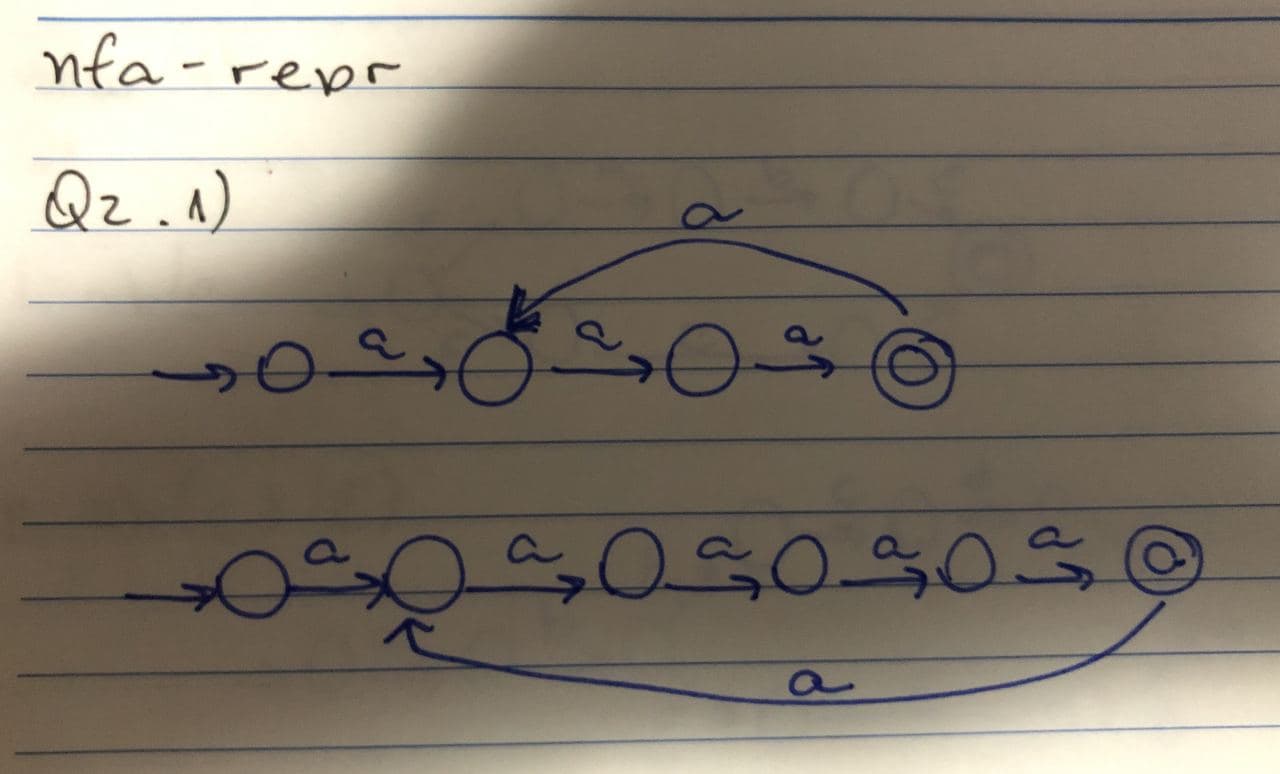 nfa-repr
Q2.1)
a
a a a
a a a a a
a